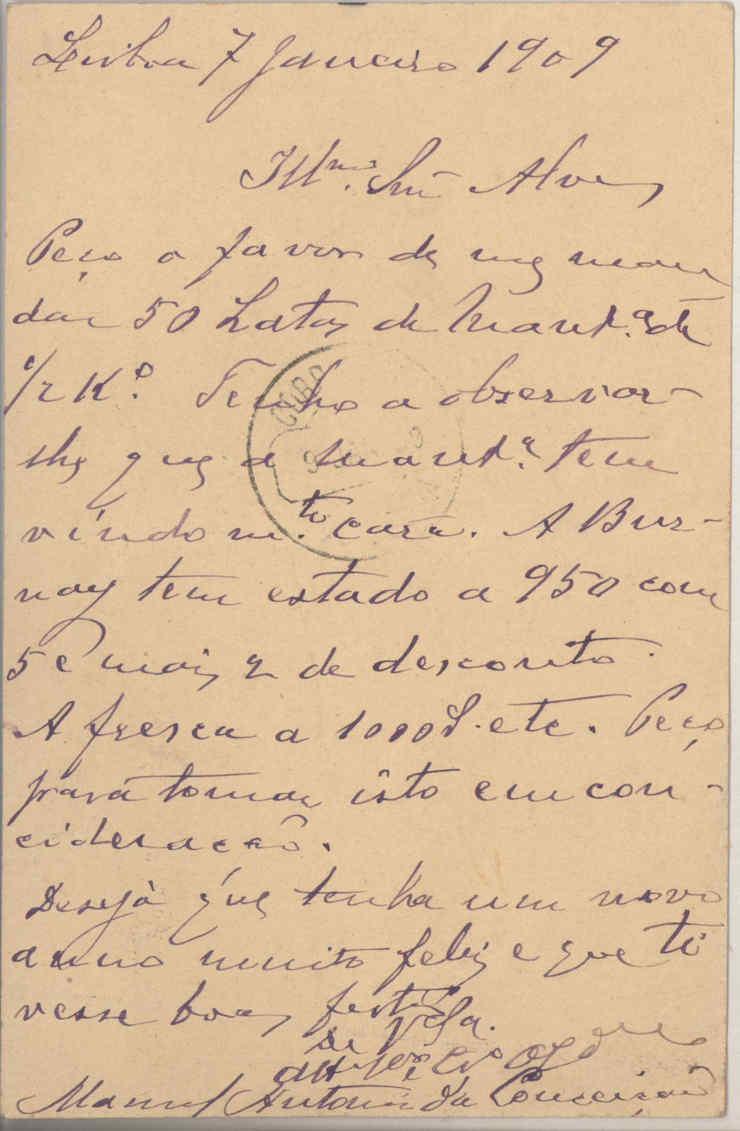 Lisboa 7 Janeiro 1909
Illmo. Snr Alves
Peço o favor de me man
dar 50 Latas de Mant.a de
1/2 Ko. Tenho a observar-
lhe que a mant.a tem
vindo m.to cara. A Bur-
nay tem estado a 950 com
5 e mais 2 de desconto.
A fresca a 1000 etc. Peço
para tomar isto em con-
cideração.
Desejo que tenha um novo
anno muito feliz e que ti
vesse boas festas.
De V. Sa.
Att.
Manuel Antonio da Conceição
CUBA